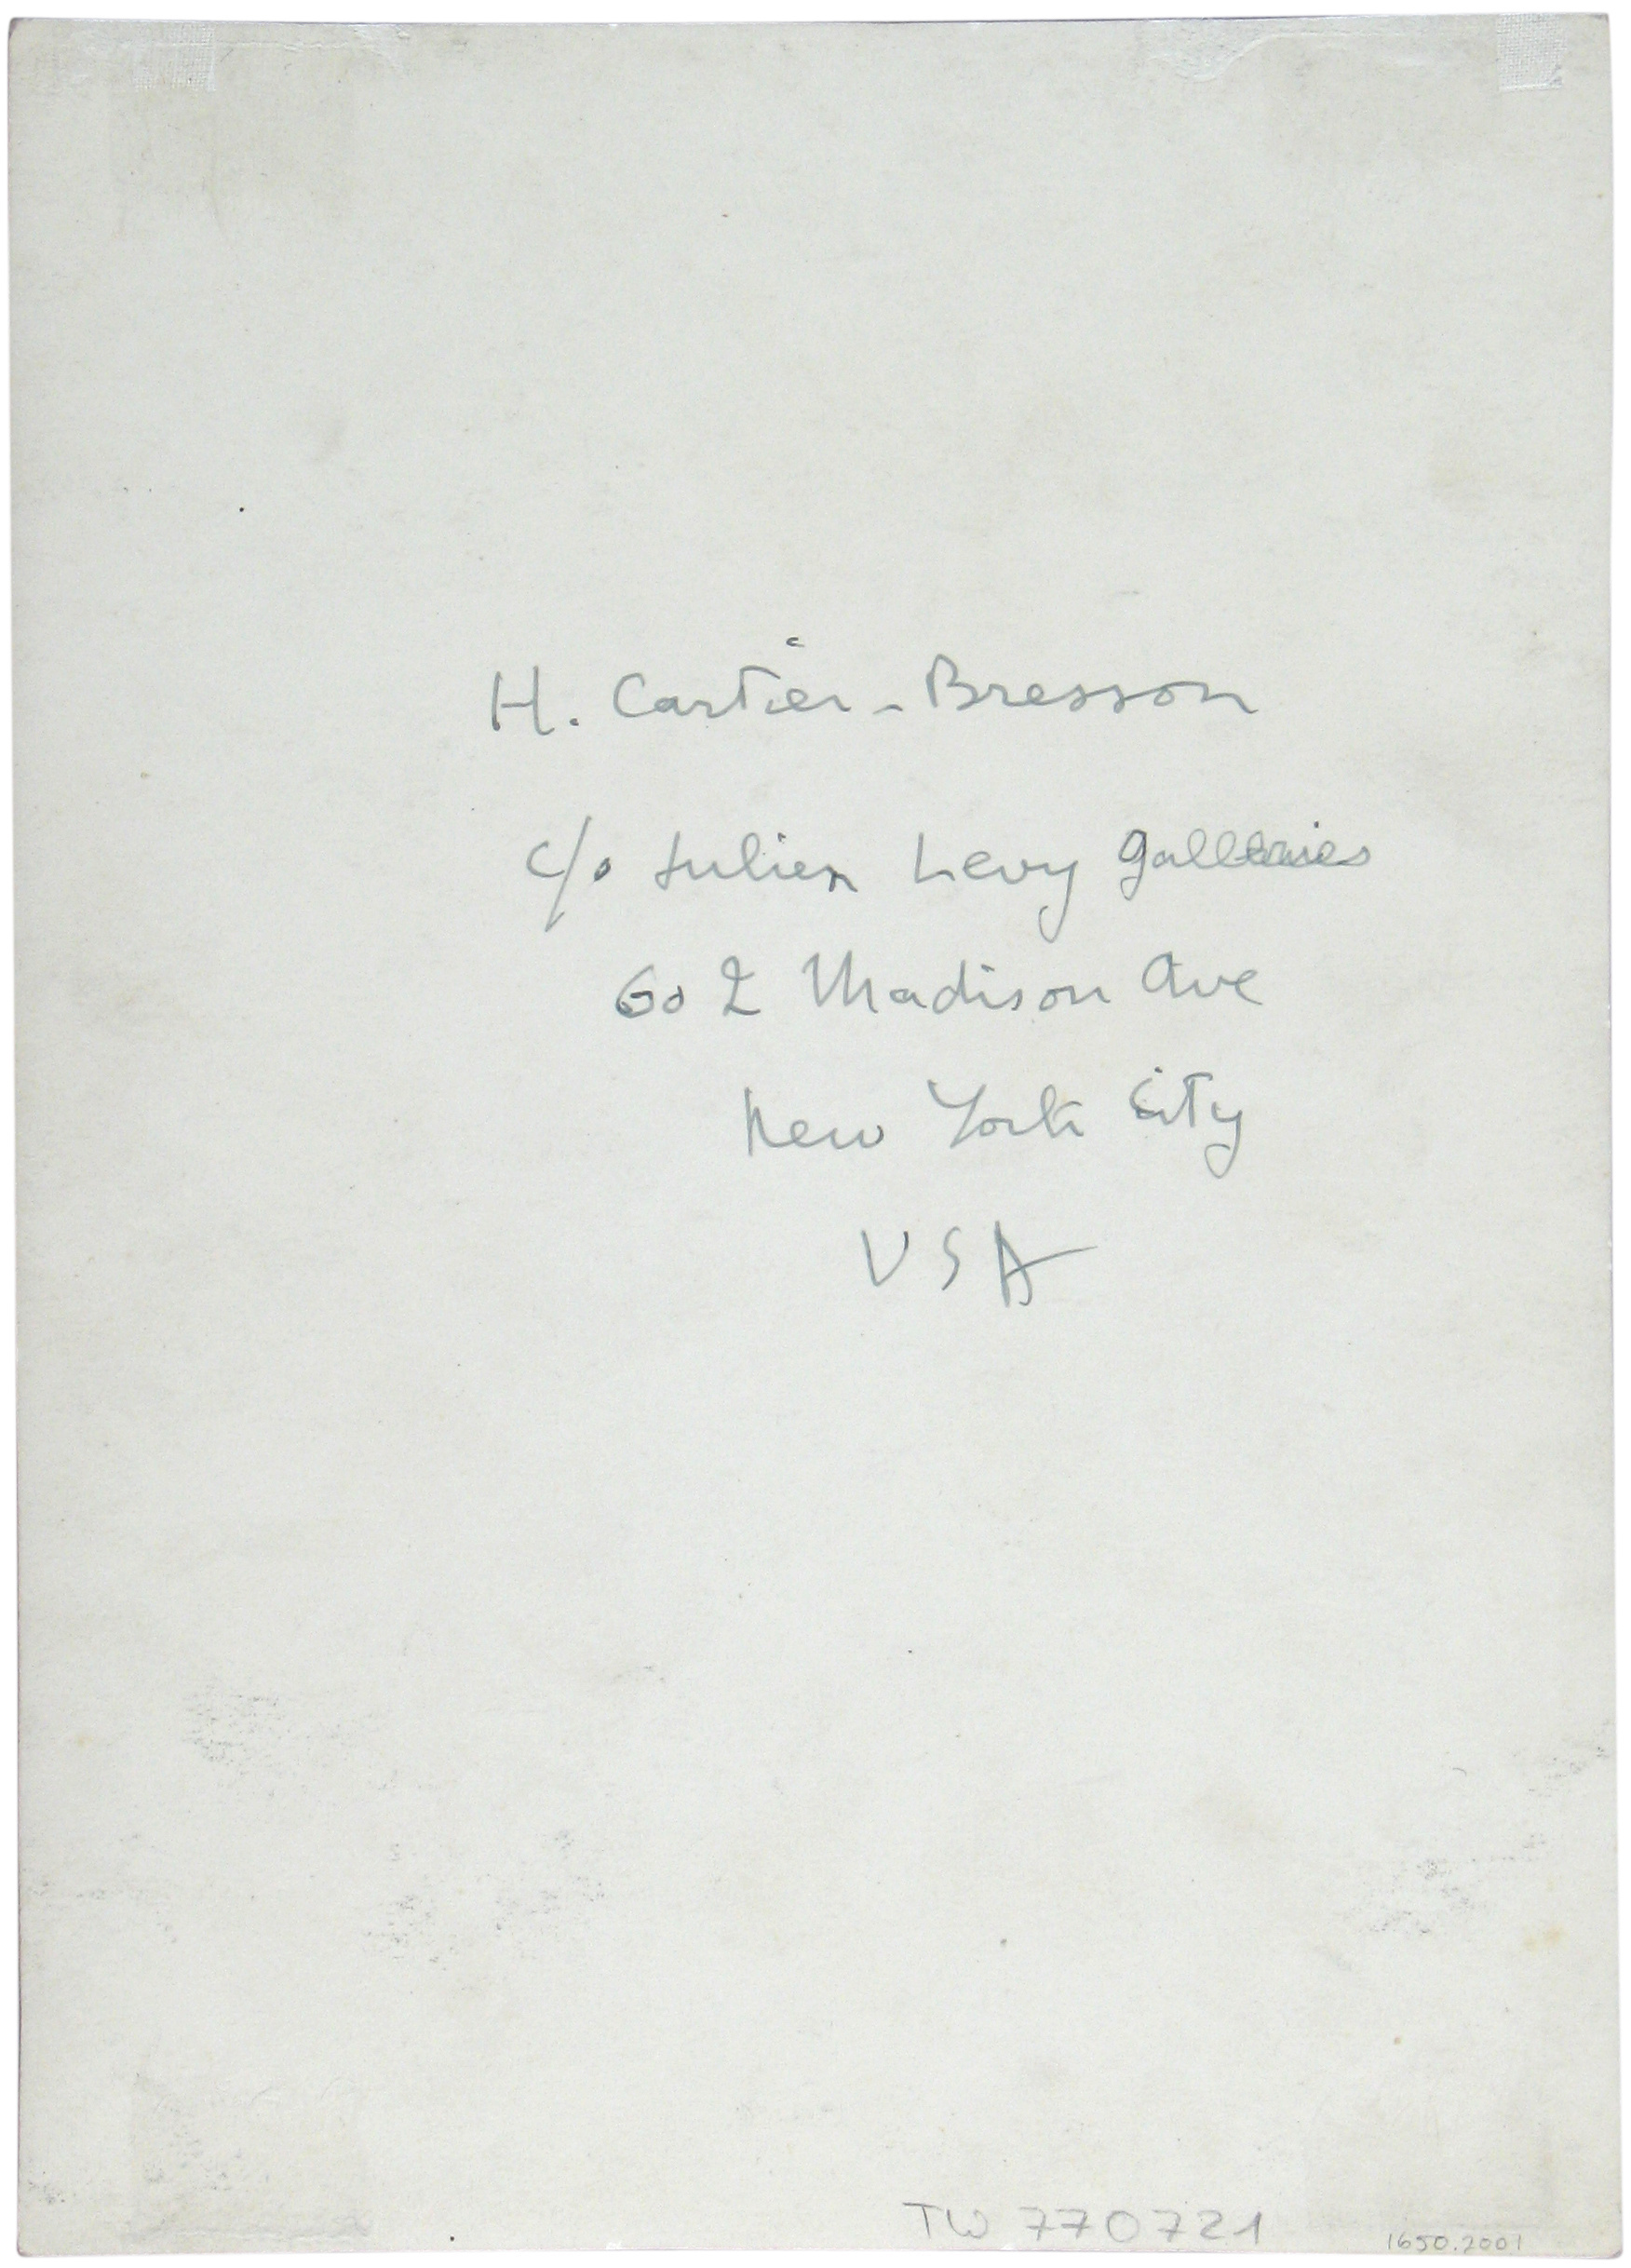 H. Cartier-Bresson
c/o Julien Levy Galleries
602 Madison Ave
New York City
USA
TW 770721
1650.2001